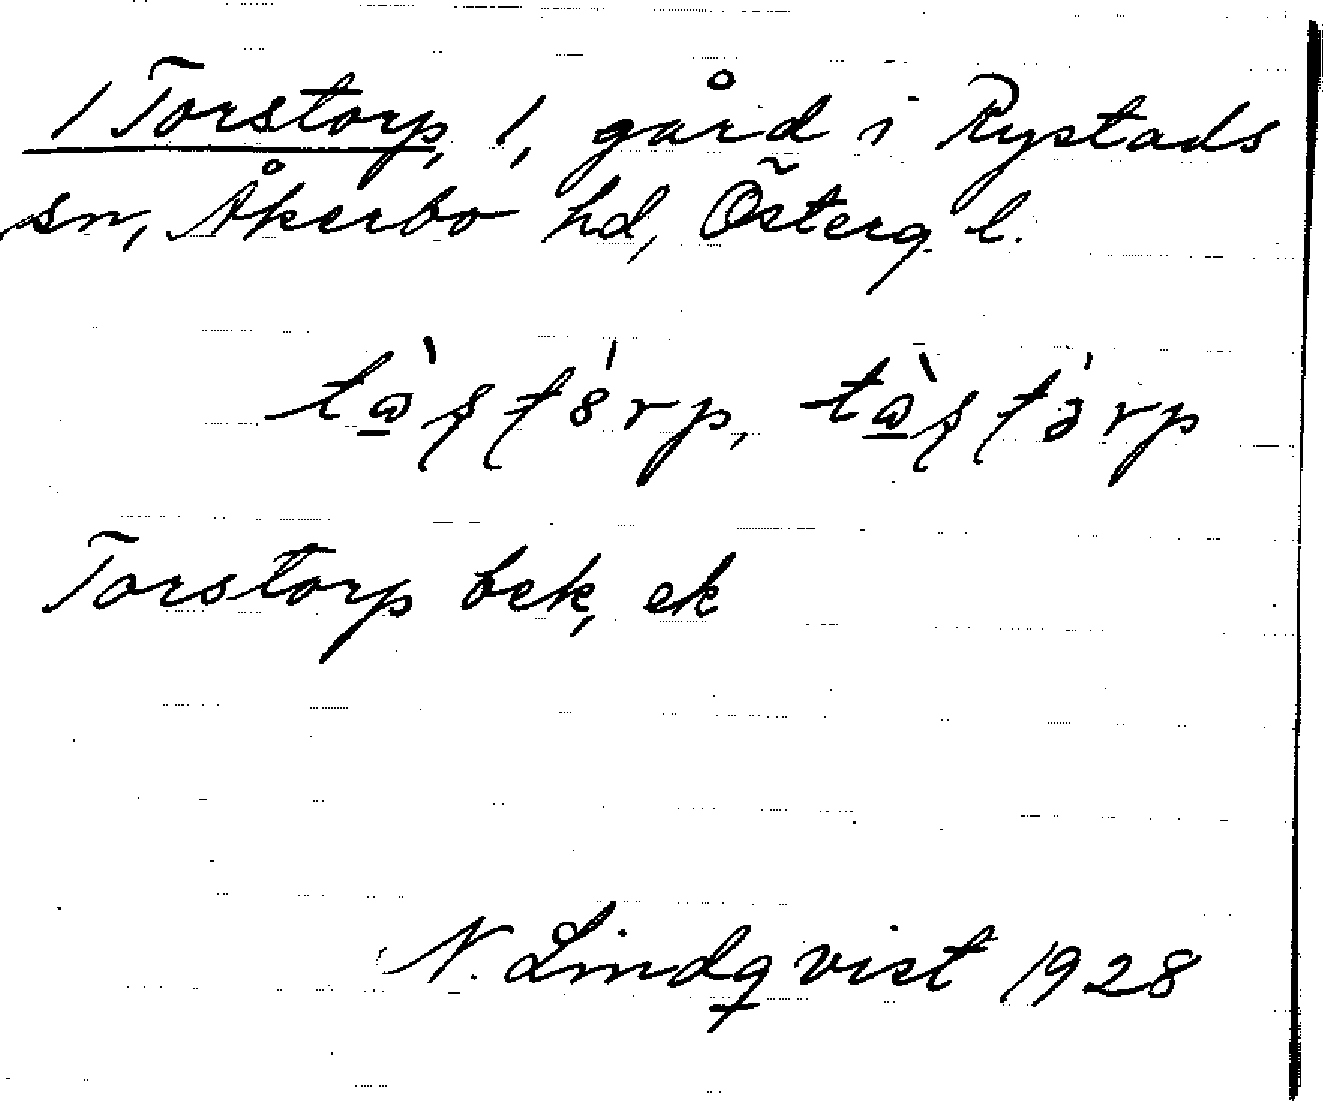 1 Torstorp, 1, gård i Rystads
sn, Åkerbo hd, Österg. l.
Torstorp bek, ek
N. Lindqvist 1928